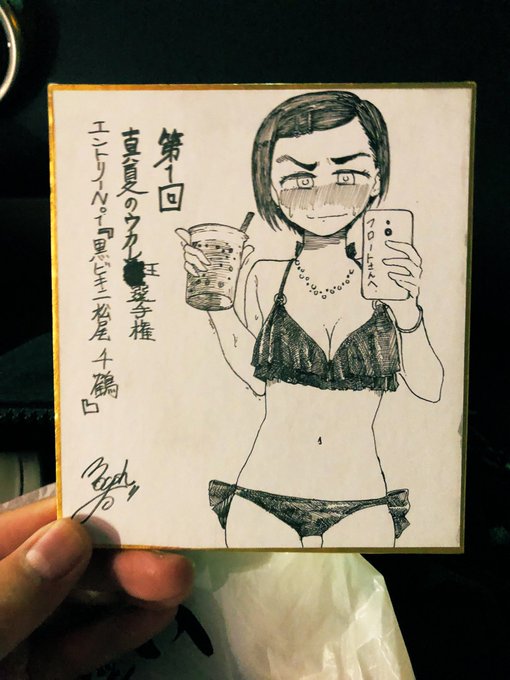 第1回
真夏のウカレ王選手権
エントリーNo.1『黒ビキニ松尾千鶴』
フロートさんへ.